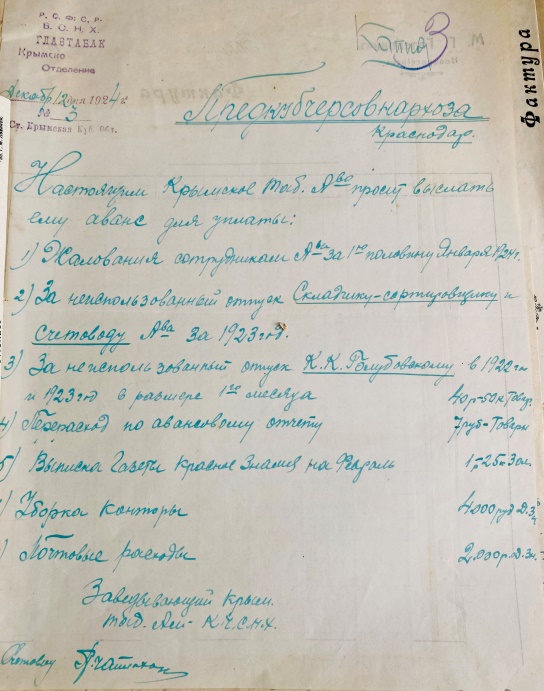 Р. С. Ф. С. Р.
В. С. Н. Х.
ГЛАВТАБАК
Крымско
Отделение
12 дня 1924 г.
№ 3
Ст. Крымская Куб. Обл.
3
Фактура
Предкубчерсовнархоза
Краснодар.
Настоящим Крымское Таб. А-во просит выслать
ему аванс для уплаты:
1) Жалования сотрудникам А-ва за 1-ую половину Января 1924 г.
2) За неиспользованный отпуск Складчику-сортировщику и
счетоводу А-ва за 1923 год.
3) За неиспользованный отпуск К.К. Голубовскому в 1922 г
и 1923 год в размере 1го месяца 40р-50к Товар.
4) Перерасход по авансовому отчету 7руб-Товарн
5) Выписка Газеты Красное Знамя на Февраль 1р-25к Зол.
) Уборка конторы 4000 руб Д.Зн.
) Почтовые расходы 2.000р. Д.Зн.
Заведывающий Крым.
К.Ч.С.Н.Х.
Счетовод